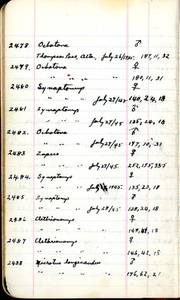 2478 Ochotona ♂
Thompson Pass, Alta, July 26/45. 187, 11, 32
2479. Ochotona ♀
" " " " 180, 11, 31
2480 Synaptomys ♀
" " July 27/45 140, 24, 18
2481 Synaptomys ♂
" " July 27/45 125, 20, 18
2482. Ochotona ♂
" " July 27/45 197, 10, 31
2483 Zapus ♀
" " July 27/45. 252, 155, 33
2484. Synaptomys ♂
" " July 1945. 135, 23, 18
2485 Synaptomys ♂
" " July 28/45 128, 24, 18
2486 Clethrionomys ♀
" " " 147, 48, 18
2487 Clethrionomys ♀
" " " 146, 42, 18
2488 Microtus longicaudus ♂
" " " 176, 62, 21